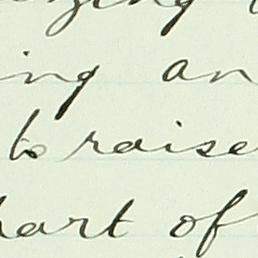 ing an
to raise
part of